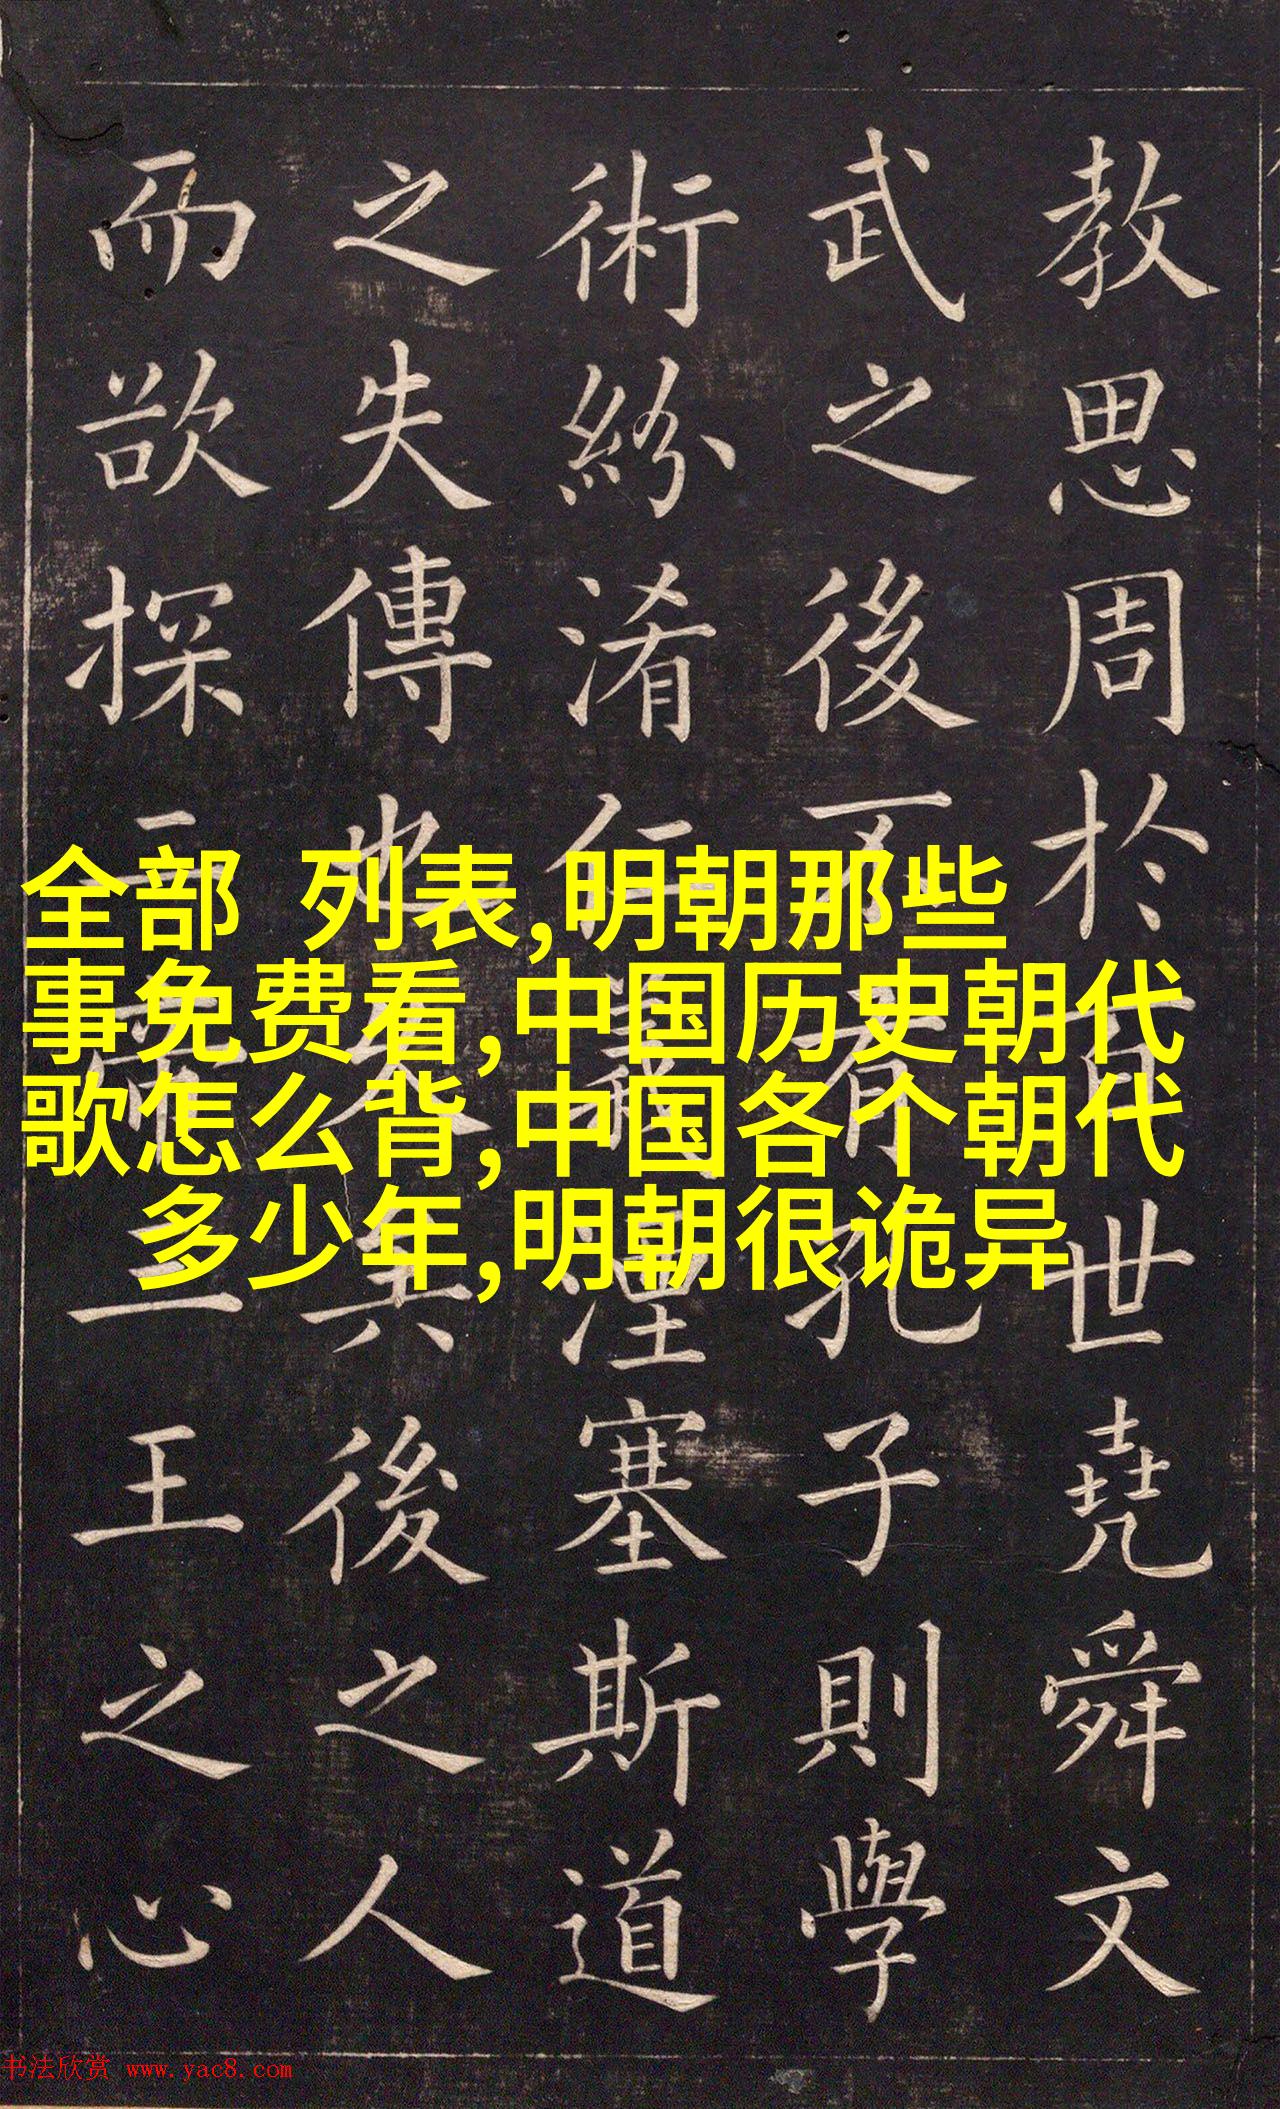 教思周於百世堯舜文
武之後不有孔子則學
術紛淆仁義湮塞斯道
之失傳也久矣後之人
而欲探二帝三王之心
全部 列表,明朝那些
事免费看,中国历史朝代
歌怎么背,中国各个朝代
多少年,明朝很诡异
书法欣赏 www.yac8.com